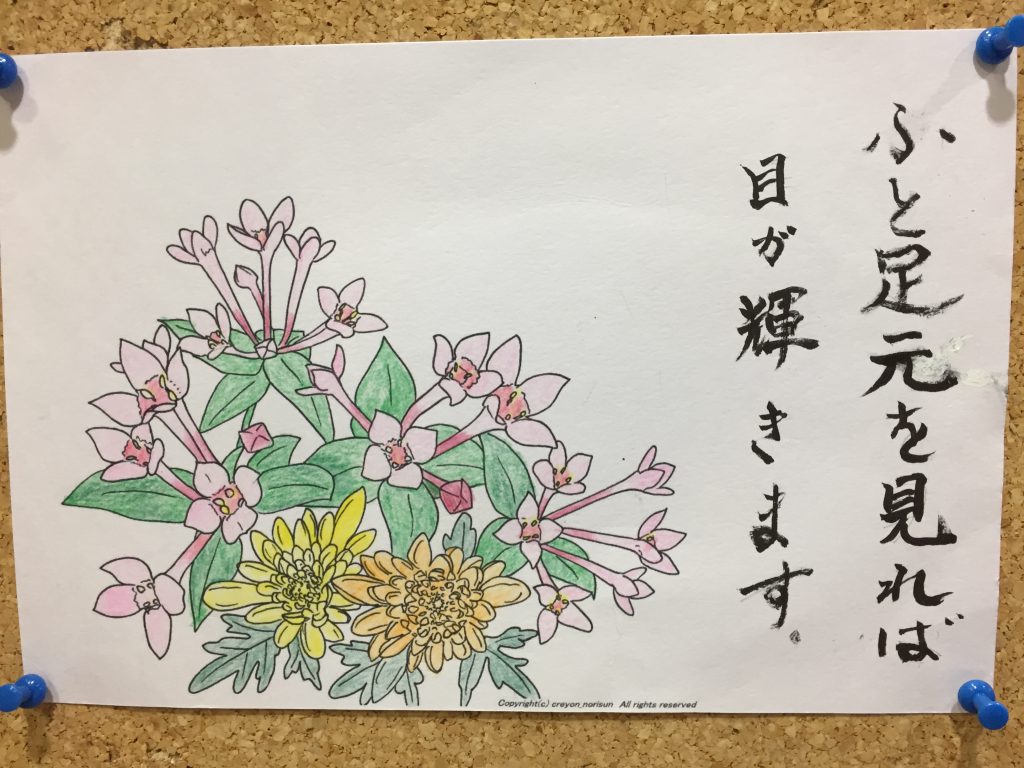 ふと足元を見れば
目が輝きます.
Copyright(c) creyon_norisun All rights reserved